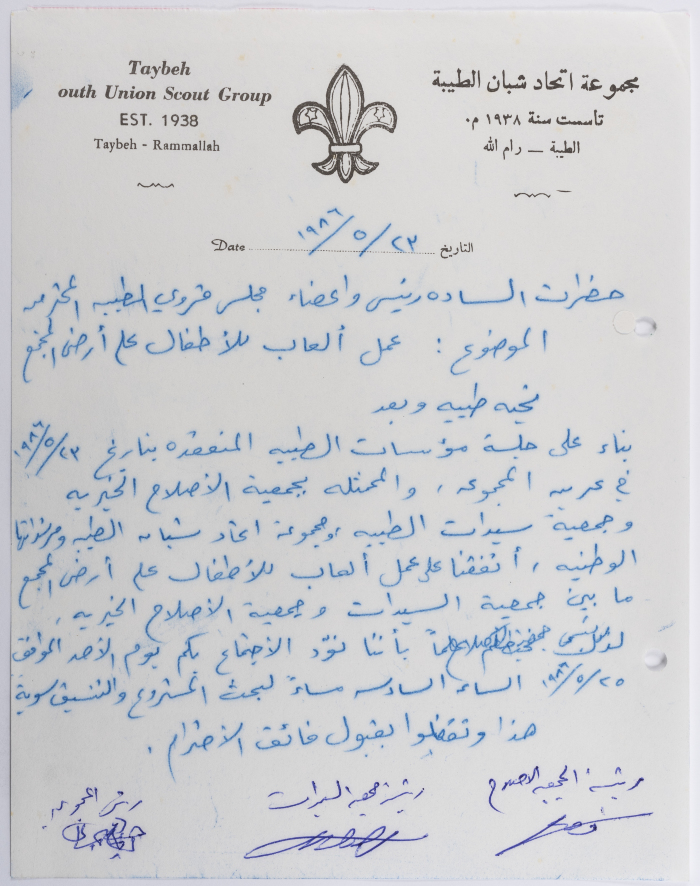 Taybeh
outh Union Scout Group
EST. 1938
Taybeh - Rammallah
مجموعة اتحاد شبان الطيبة
تأسست سنة ١٩٣٨ م.
الطيبة — رام الله
Date ٢٣/٥/١٩٨٦ التاريخ
حضرات الساده رئيس واعضاء مجلس قروي الطيبه المحترمين
الموضوع : عمل ألعاب للأطفال على أرض المجمع
تحيه طيبه وبعد
بناء على جلسة مؤسسات الطيبه المنعقده بتاريخ ٢٣/٥/١٩٨٦
في المجموعه ، والممثله بجمعية الأصلاح الخيريه
وجمعية سيدات الطيبه ومجموعة اتحاد شبان الطيبه
الوطنيه ، أتفقنا على عمل ألعاب للأطفال على أرض المجمع
ما بين جمعية السيدات وجمعية الأصلاح الخيريه ،
علماً بأننا نود الأجتماع بكم يوم الأحد الموافق
٢٥/٥/١٩٨٦ الساعه السادسه مساءً لبحث المشروع والتنسيق سوية
هذا وتفضلوا بقبول فائق الأحترام .
رئيسة الجمعيه الاصلاح
رئيسة جمعيه السيدات
رئيس المجموعه